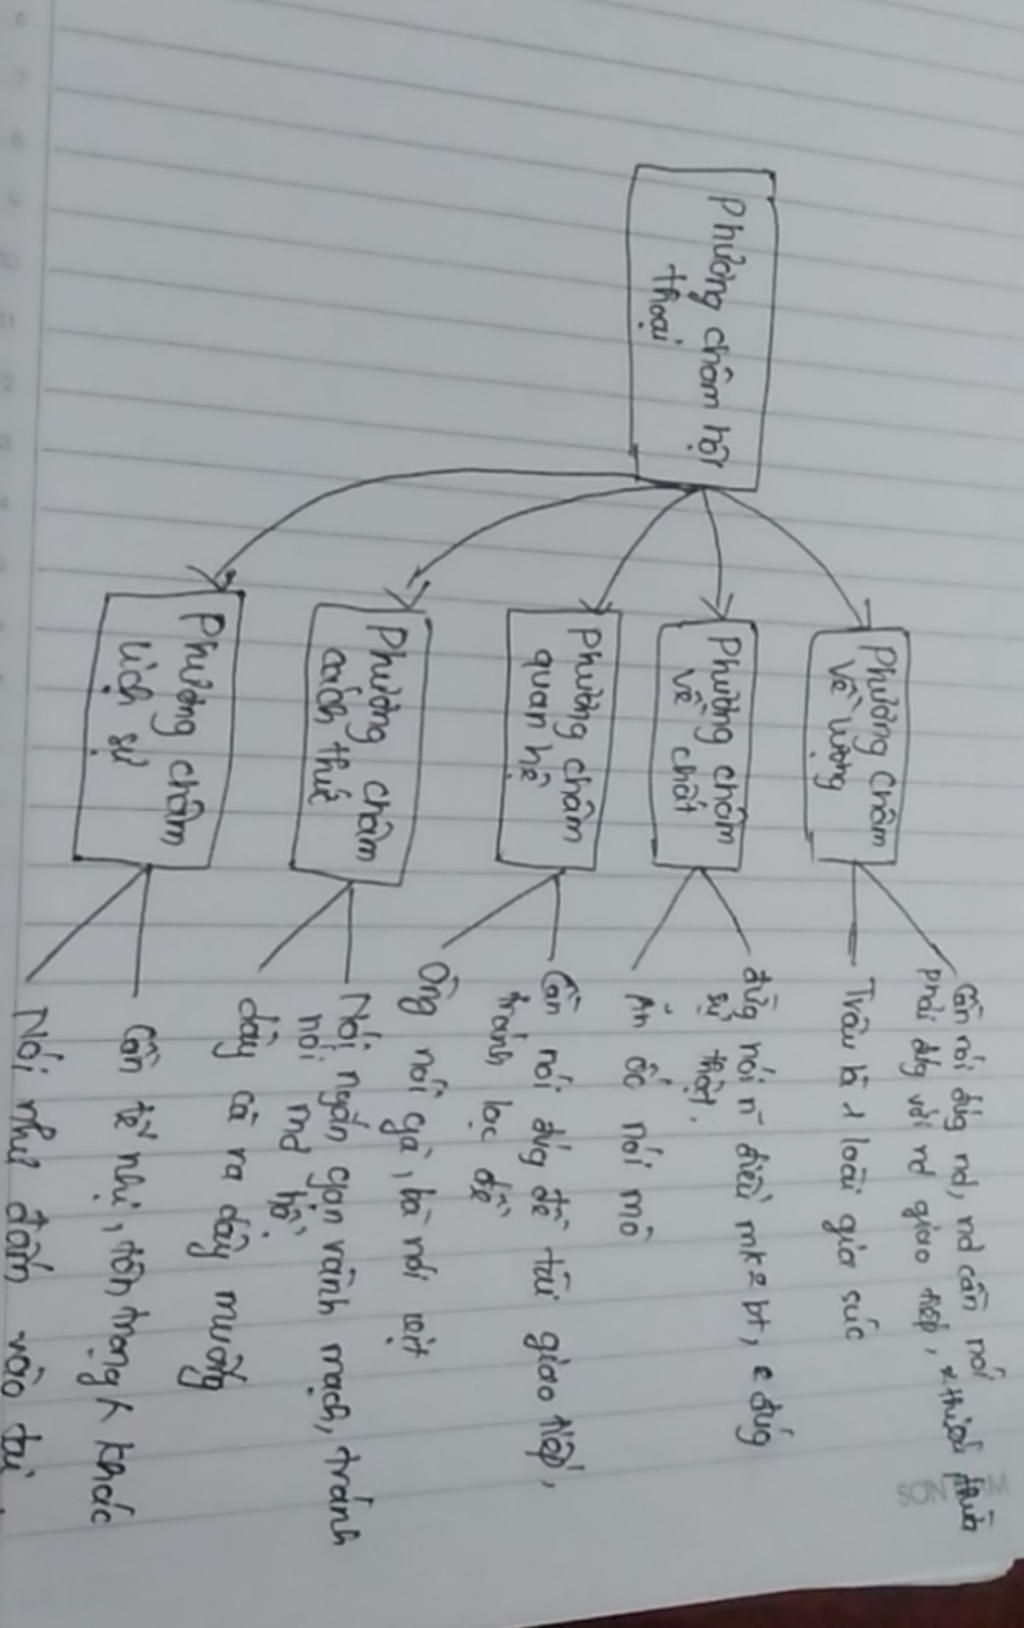 Phương châm hội
thoại
Phương châm
về lượng
Cần nói đúng nd, nd cần nói
phải đúng với nd giao tiếp, thiếu thừa
Trâu là 1 loài gia súc
Phương châm
về chất
đừng nói n~ điều mk bt, đúng
sự thật.
Ăn ốc nói mò
Phương châm
quan hệ
Cần nói đúng đề tài giao tiếp,
tránh lạc đề
Ông nói gà, bà nói vịt
Phương châm
cách thức
Nói ngắn gọn rành mạch, tránh
nói mơ hồ
dây cà ra dây muống
Phương châm
lịch sự
Cần tế nhị, tôn trọng khác
Nói như đấm vào tai
SON